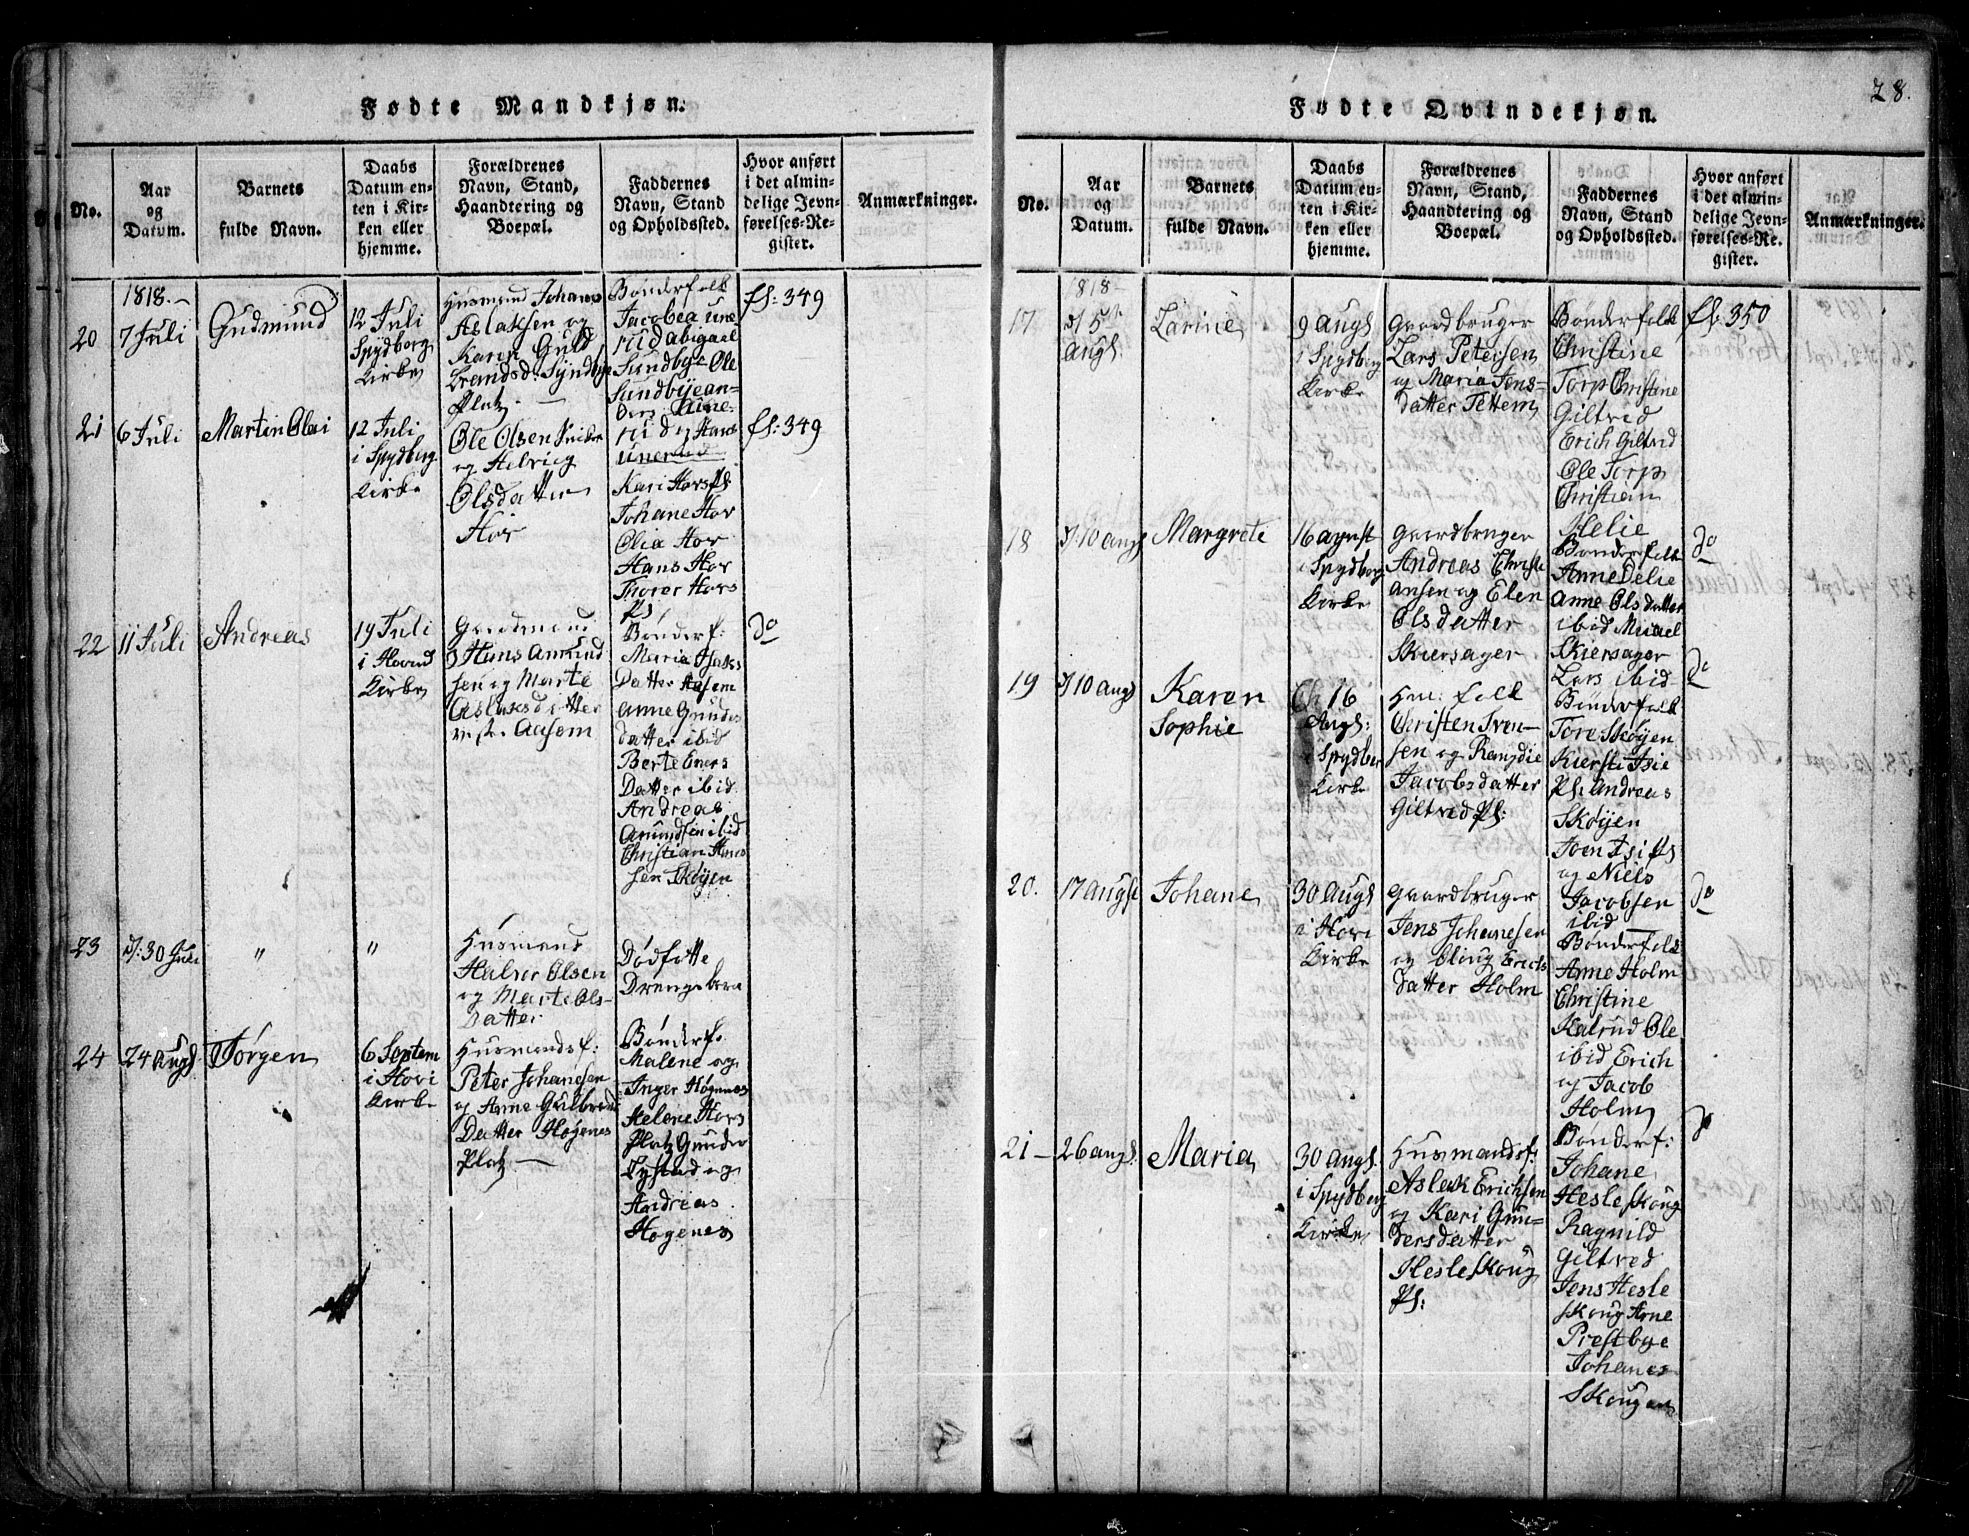 28.
Fødte Mandkjøn.
No.
Aar
og
Datum.
Barnets
fulde Navn.
Daabs
Datum en-
ten i Kir-
ken eller
hjemme.
Forældrenes
Navn, Stand,
Haandtering og
Boepæl.
Faddernes
Navn, Stand
og Opholdssted.
Hvor anført
i det almin-
delige Jevn-
førelses-Re-
gister.
Anmærkninger.
1818.
20
7 Juli
Gudmund
12 Juli
Spydberg
Kirke
Husmand Johans
Aslaksen og
Karen Guld
brandsd. Syndbye
Platz
Bønderfolk
Jacobea une
rud abigael
Sundbye Ole
Sundbye an-
ders Une-
rud og Hans
Unerud
fl: 349
21
6 Juli
Martin Olai
12 Juli
i Spydberg
Kirke
Ole Olsen
og Helvig
Olsdatter
Hov
Kari Hovs Pl
Johane Hov
Olia Hov
Hans Hov
Thorer Hovs
Pl
fl: 349
22
11 Juli
Andreas
19 Juli
i Hovind
Kirke
Gaardmand
Hans Amund
sen og Marte
Aslaksdatter
Aasem
Bønderf:
Maria Isaks
Datter Aasem
Anne Gunders
datter ibid
Berte Eners
Datter ibid
Andreas
Amundsen ibid
Christian Hans
sen Skøyen
do
23
d: 30 Juli
"
"
Husmand
Halvor Olsen
og Marte Ols-
Datter
Dødføtte
Drengebarn
24
24 Augs
Jørgen
6 Septem
i Hovi
Kirke
Husmandsf:
Peter Johanesen
og Anne Gulbrands
Datter Høgenes
Platz
Bønderf.
Malene og
Inger Høgenes
Helene Hovs
Platz Gunder
Lystad og
Andreas
Høgenes
Fødte Qvindekjøn.
No.
Aar
og
Datum.
Barnets
fulde Navn.
Daabs
Datum en-
ten i Kir-
ken eller
hjemme.
Forældrenes
Navn, Stand,
Haandtering og
Boepæl.
Faddernes
Navn, Stand
og Opholdssted.
Hvor anført
i det almin-
delige Jevn-
førelses-Re-
gister.
Anmærkninger.
1818
17
d 5te
Augs:
Larine
9 Augs
i Spydberg
Kirke
Gaardbruger
Lars Petersen
og Maria Jens-
datter Tettem
Bønderfolk
Christine
Torp Christine
Giltved
Erich Giltved
Ole Torp
Christian
Helie
fl. 350
18
d 10 Augs
Margrete
16 Agust
i Spydberg
Kirke
Gaardbruger
Andreas Christi
ansen og Elen
Olsdatter
Skiersager
Bønderfolk
Anne Delie
Anne Olsdatter
ibid Micael
Skiersager
Lars ibid
do
19
d 10 Augs
Karen
Sophie
16
Augs:
i Spydber
Kirke
Hm: folk
Christen Sven-
sen og Rangdie
Jacobsdatter
Giltved Pl:
Bønderfolk
Tore Skøyen
Kiersti Isie
Pl: Andreas
Skøyen
Joen Isi Pl
og Niels
Jacobsen
ibid
do
20.
17 Augst
Johane
30 Augs
i Hovi
Kirke
Gaardbruger
Jens Johanesen
og Oliug Erichs
datter Holm
Bønderfolk
Anne Holm
Christine
Kalrud Ole
ibid Erich
og Jacob
Holm
do
21
26 Augs.
Maria
30 Augs.
i Spydberg
Kirke
Husmandsf:
Aslak Erichsen
og Kari Gun-
dersdatter
Hesleskoug
Pl:
Bønderf:
Johane
Hesleskoug
Ragnild
Giltved
Jens Hesle
skoug Arne
Prestbye
Johanes
Skougen
do